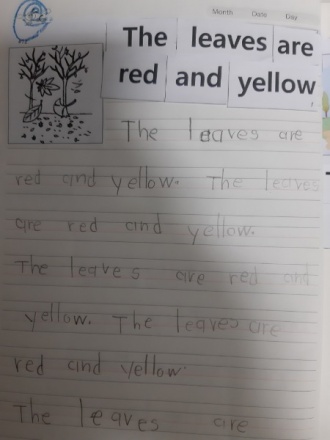 Month Date Day
The leaves are
red and yellow
The leaves are
red and yellow. The leaves
are red and yellow.
The leaves are red and
yellow. The leaves are
red and yellow.
The leaves are